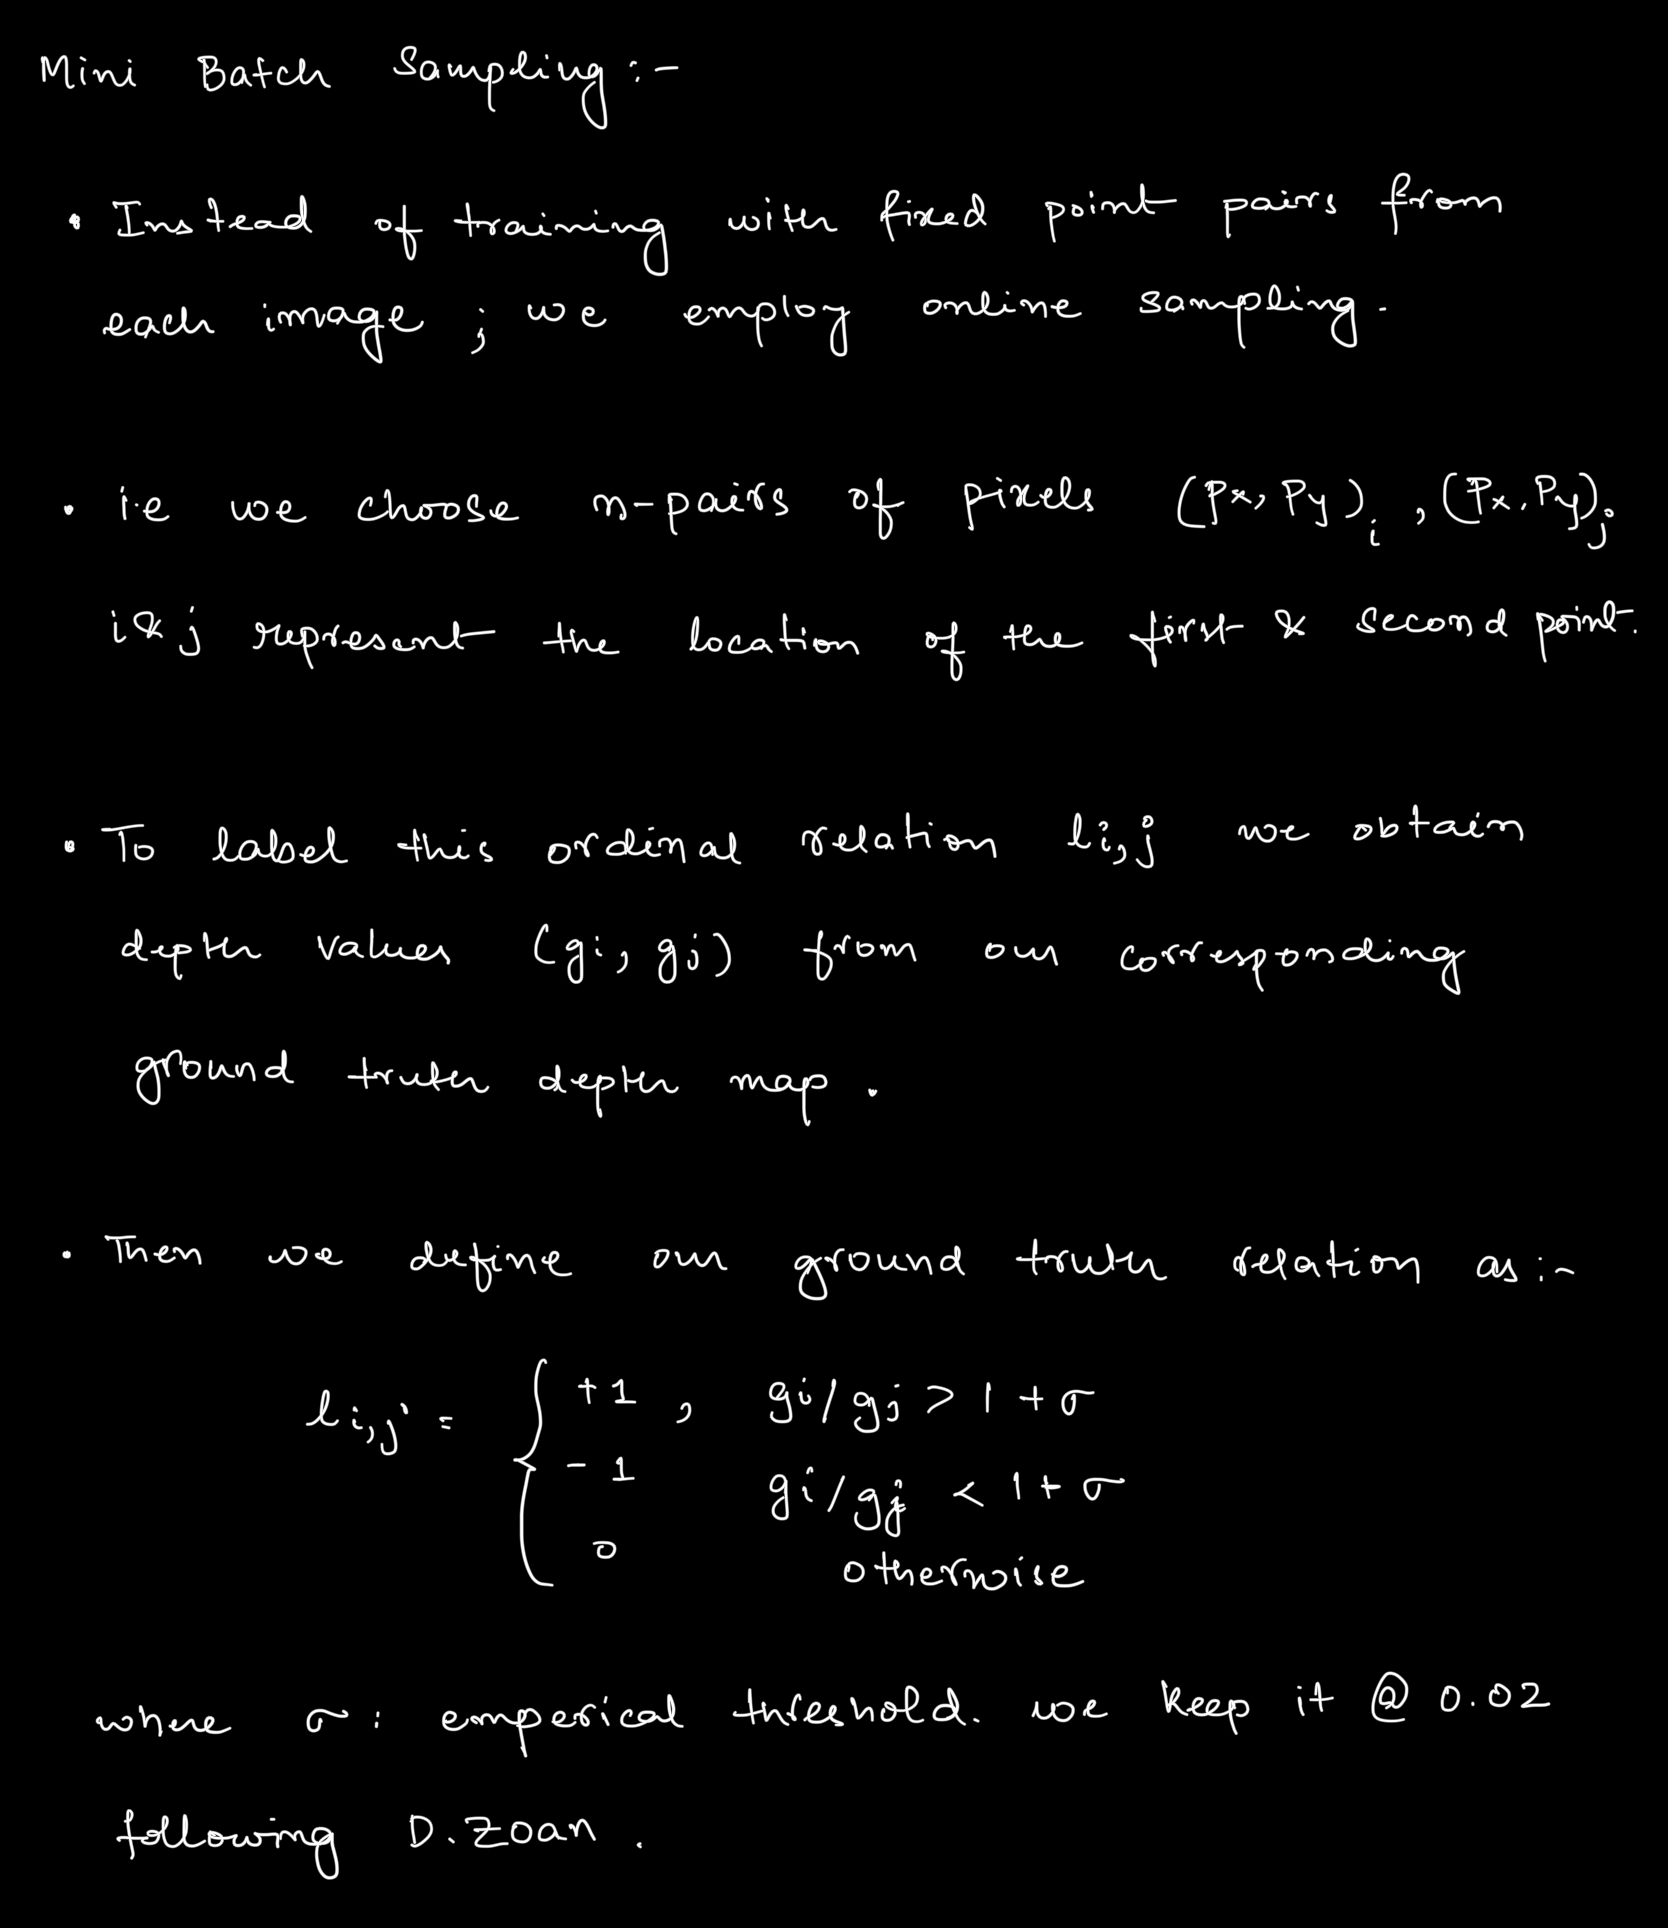 Mini Batch Sampling :-
• Instead of training with fixed point pairs from
each image ; we employ online sampling.
• i.e we choose n-pairs of pixels (Px, Py)i , (Px, Py)j
i & j represent the location of the first & second point.
• To label this ordinal relation li,j we obtain
depth values (gi, gj) from our corresponding
ground truth depth map .
• Then we define our ground truth relation as :-
li,j = { +1 , gi/gj > 1 + σ
- 1 gi/gj < 1 + σ
0 otherwise
where σ : emperical threshold. we keep it @ 0.02
following D. Zoan .